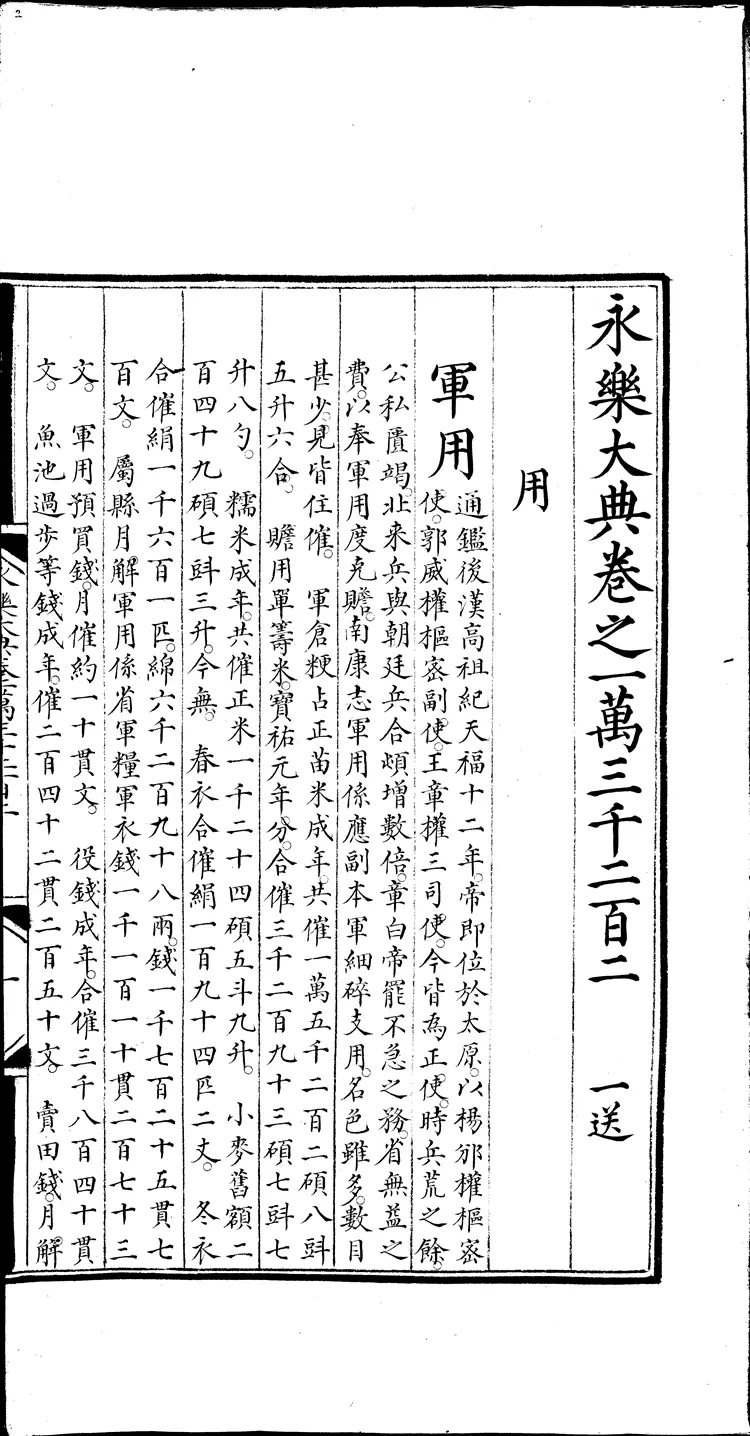 永樂大典卷之一萬三千二百二 一送
用
軍用
通鑑後漢高祖紀天福十二年。帝即位於太原。以楊邠權樞密
使。郭威權樞密副使。王章權三司使。今皆為正使。時兵荒之餘。
公私匱竭。北來兵與朝廷兵合頓增數倍。章白帝罷不急之務。省無益之
費。以奉軍用度克贍。南康志軍用係應副本軍細碎支用。名色雖多。數目
甚少。見皆住催。 軍倉粳占正苗米成年。共催一萬五千二百二碩八㪷
五升六合。 贍用單籌米。寶祐元年。分。合催三千二百九十三碩七㪷七
升八勺。 糯米成年。共催正米一千二十四碩五斗九升。 小麥舊額二
百四十九碩七㪷三升。今無。 春衣合催絹一百九十四匹二丈。 冬衣
合催絹一千六百一匹。綿六千二百九十八兩。錢一千七百二十五貫七
百文。 屬縣月解軍用係省軍糧軍衣錢一千一百一十貫二百七十三
文。 軍用預買錢。月催約一十貫文。 役錢成年。合催三千八百四十貫
文。 魚池過步等錢成年。催二百四十二貫二百五十文。 賣田錢。月解